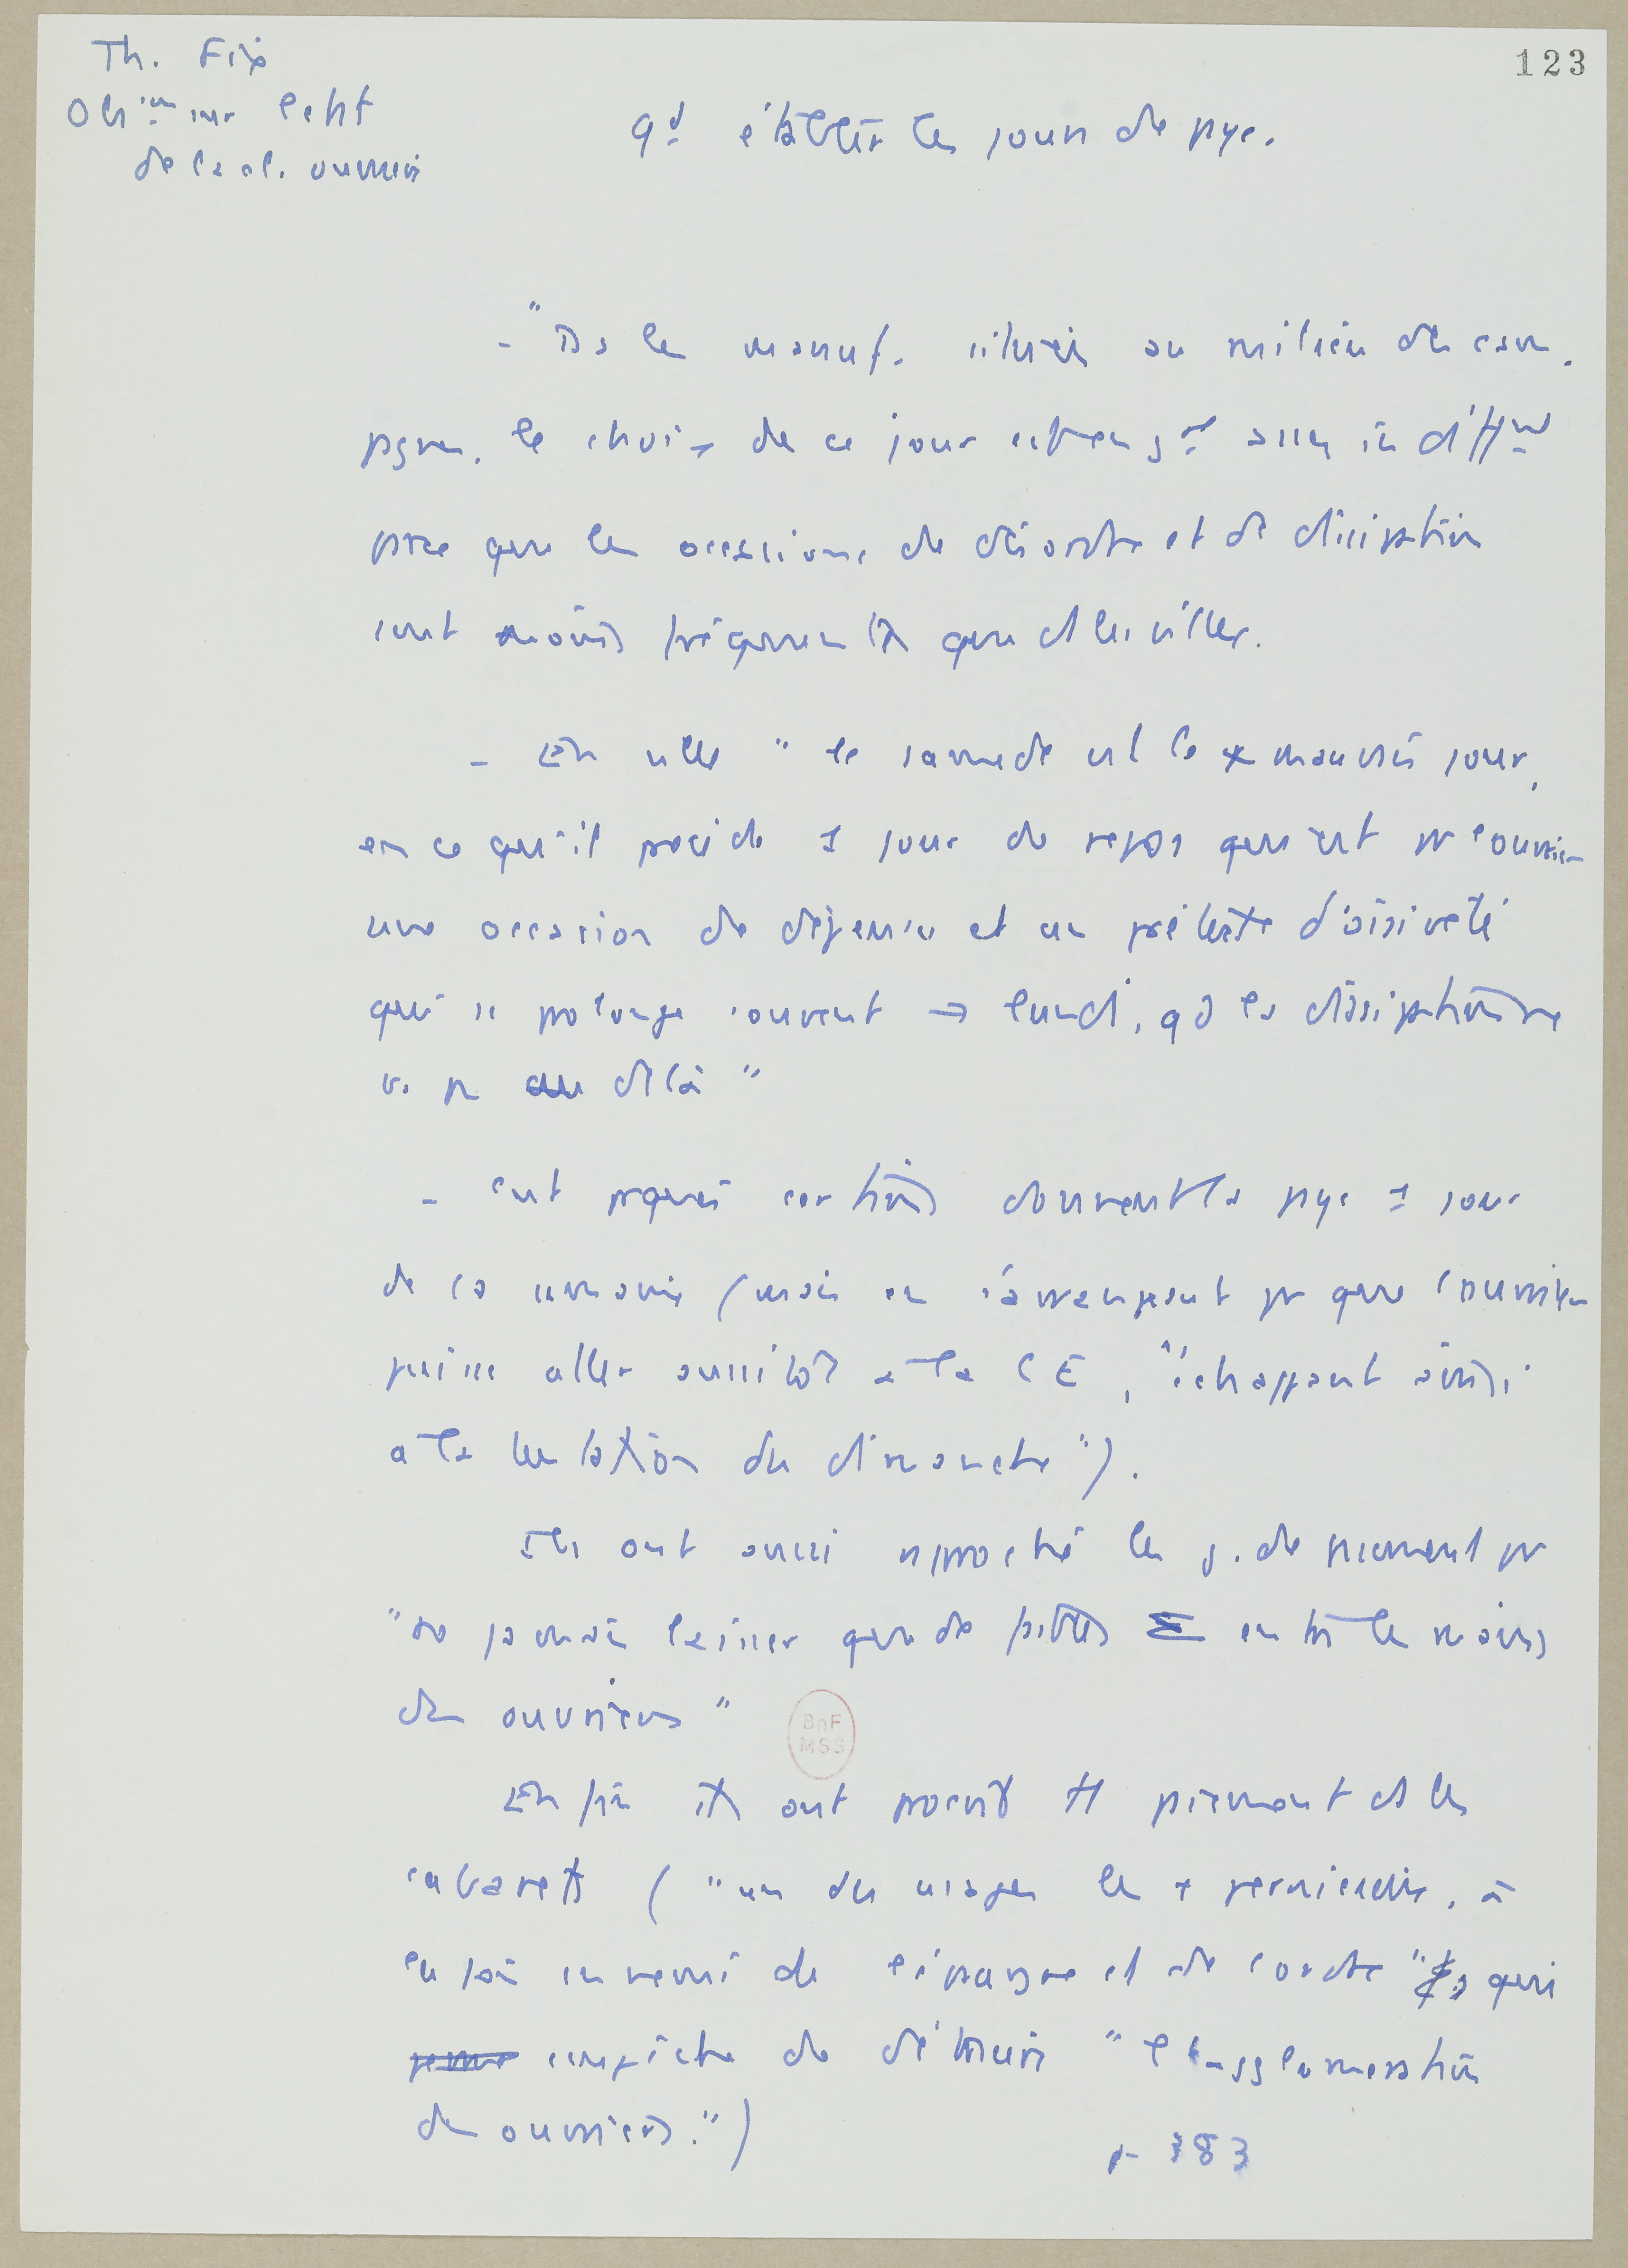 123
Th. Fix
Obs.on sur l'état
de la cl. ouvrière
qd établir les jours de paye.
- "Ds les manuf. situées au milieu des cam-
pagnes, le choix de ce jour est en gal assez indifft
parce que les occasions de désordre et de dissipation
sont moins fréquentes que ds les villes.
- En ville "le samedi est le + mauvais jour,
en ce qu'il précède 1 jour de repos qui est pr l'ouvrier
une occasion de dépense et un prétexte d'oisiveté
qui se prolonge souvent → lundi, qd la dissipation ne
va pas au delà"
- C'est pquoi certains donnent la paye 1 jour
de la semaine (mais en s'arrangeant pr que l'ouvrier
puisse aller aussitôt à la CE, "échappant ainsi
à la tentation du dimanche").
Ils ont aussi rapproché les j. de paiement pr
"ne jamais laisser que de petites Σ entre les mains
des ouvriers"
Enfin ils ont proscrit tt paiement ds les
cabarets ("un des usages les + pernicieux, à
la fois ennemi de l'épargne et de l'ordre" qui
empêche de détruire "l'agglomération
des ouvriers.")
p. 383
BnF
MSS